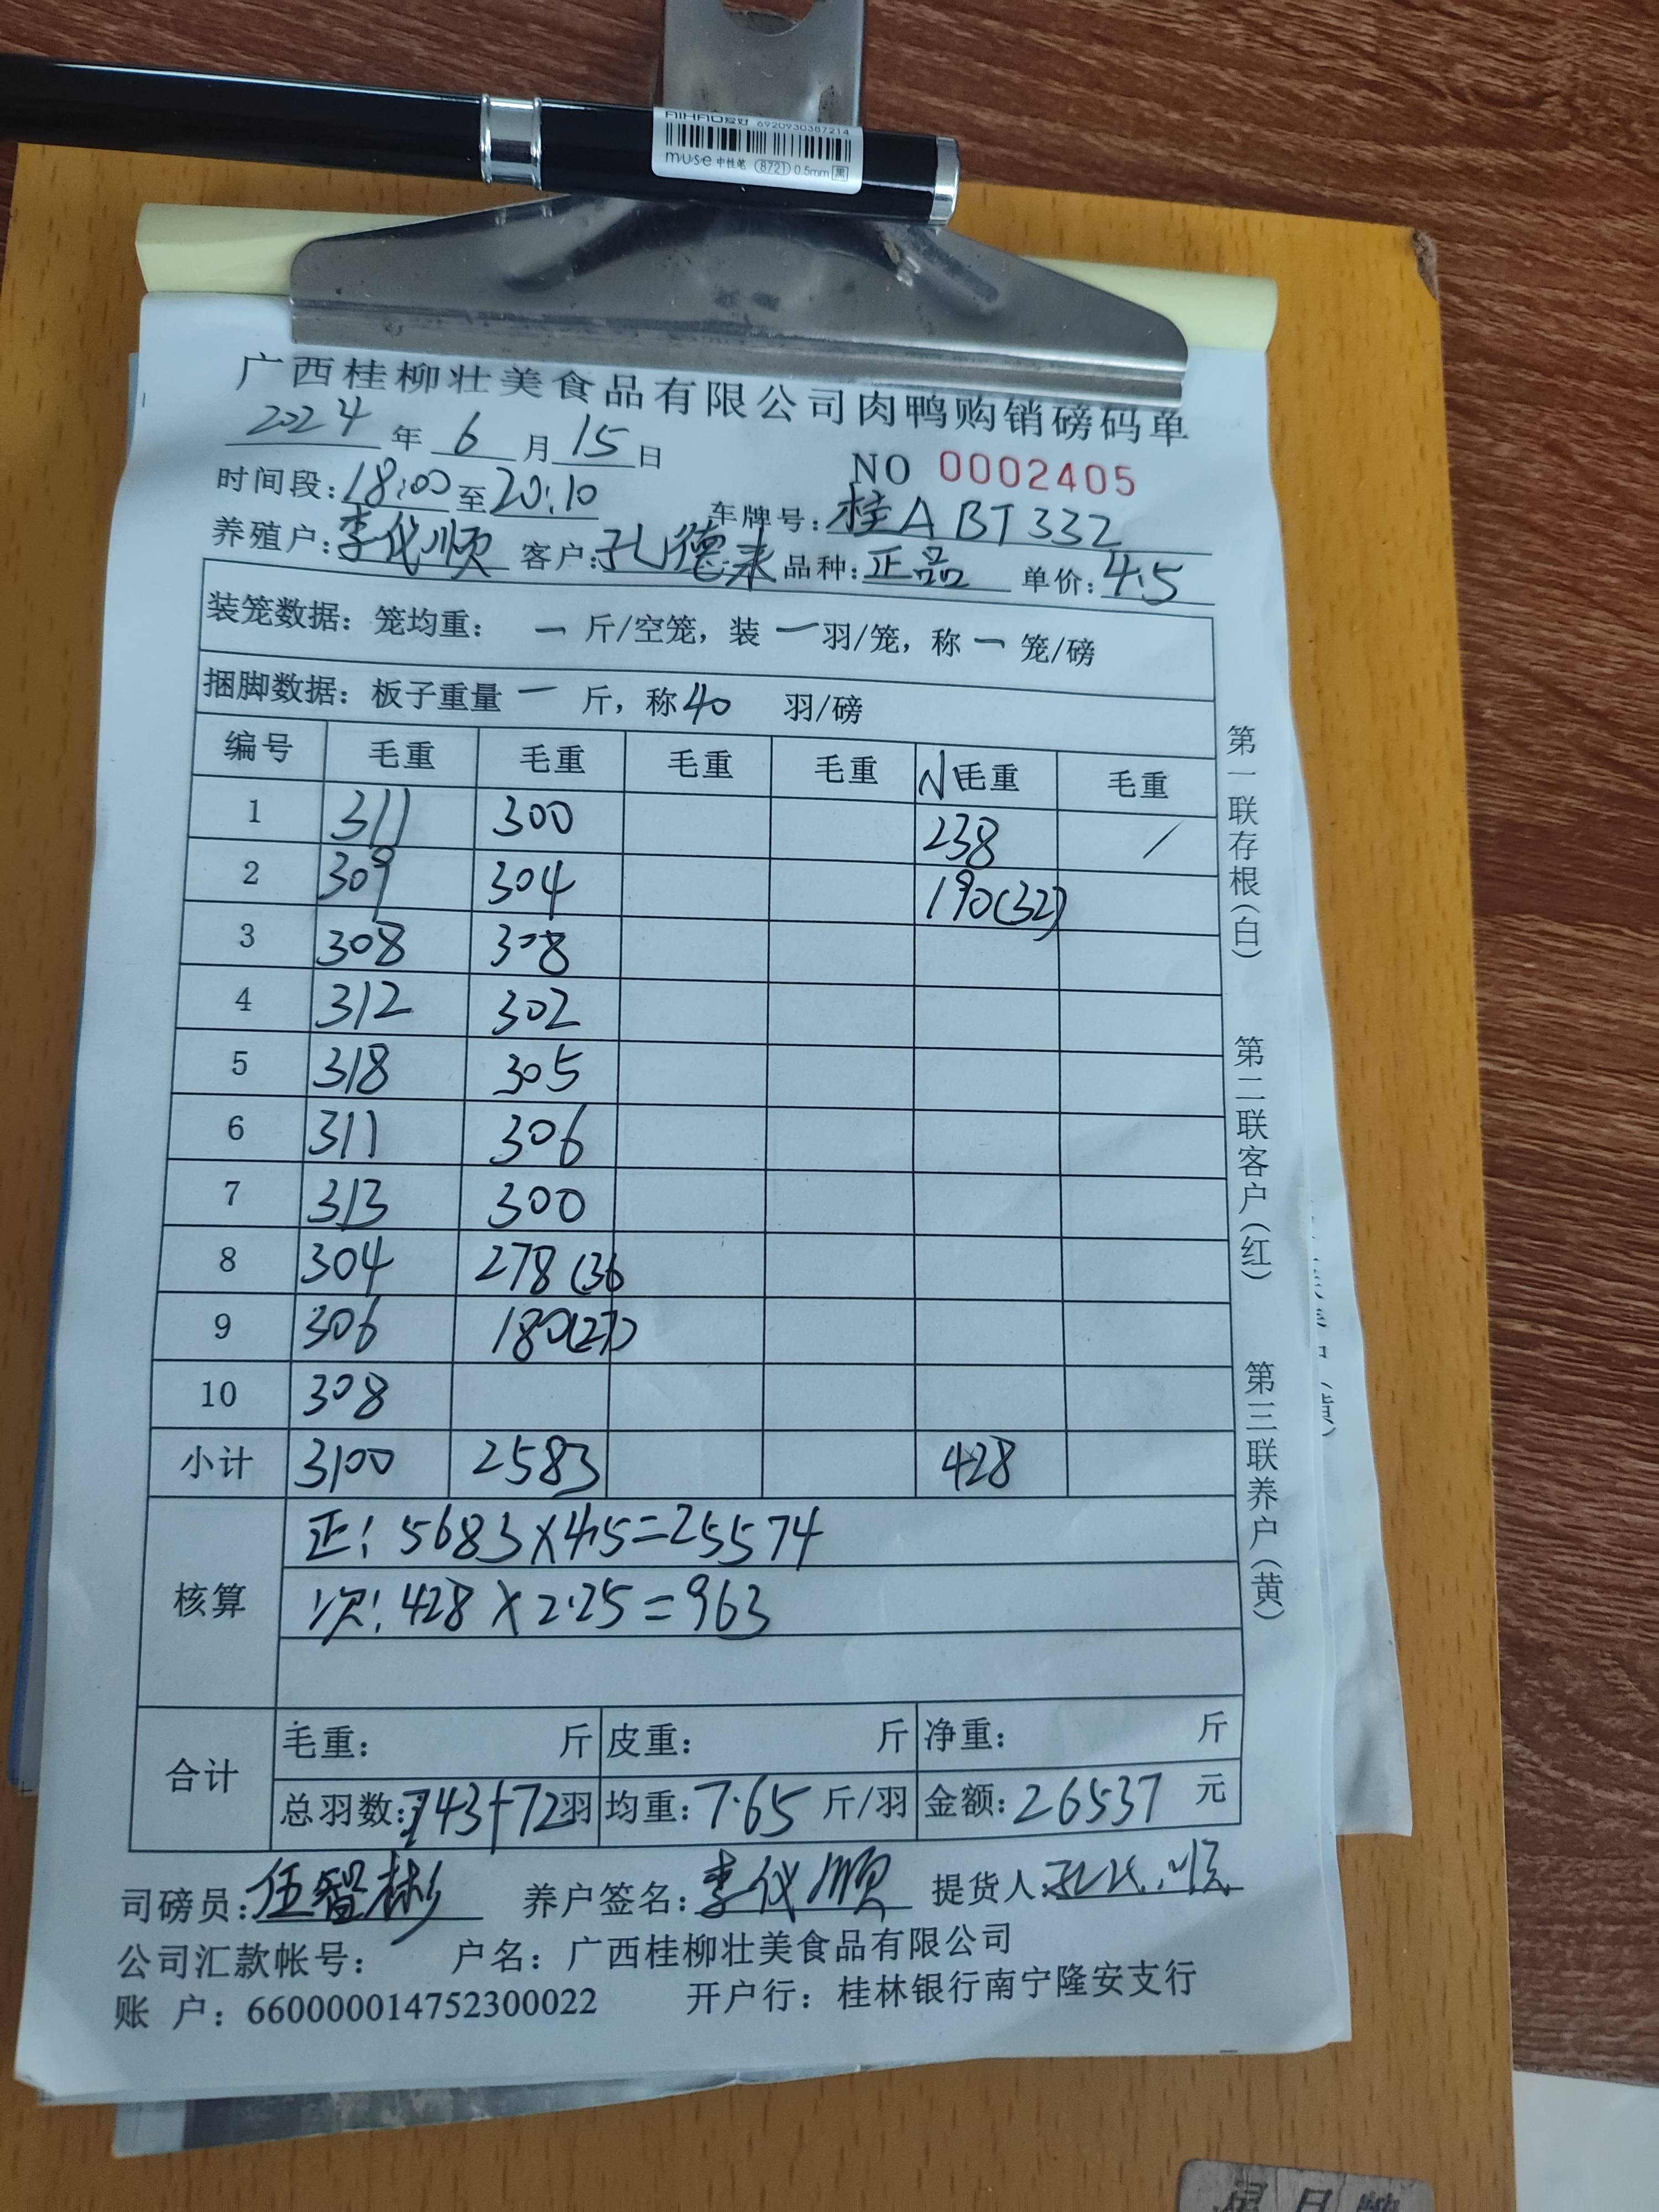 AIHAO爱好 6920930387214
muse 中性笔 8721 0.5mm 黑
广西桂柳壮美食品有限公司肉鸭购销磅码单
2024年6月15日
NO 0002405
时间段:18:00至20:10 车牌号:桂ABT332
养殖户:李仪顺 客户:孔德来 品种:正品 单价:4.5
装笼数据:笼均重: — 斤/空笼,装 — 羽/笼,称 — 笼/磅
捆脚数据:板子重量 — 斤,称40 羽/磅
编号 毛重 毛重 毛重 毛重 毛重 毛重
1 311 300 238 /
2 309 304 190(32)
3 308 308
4 312 302
5 318 305
6 311 306
7 313 300
8 304 278(36
9 306 180(27)
10 308
小计 3100 2583 428
核算
正: 5683×4.5=25574
次: 428×2.25=963
合计
毛重: 斤 皮重: 斤 净重: 斤
总羽数:743+72羽 均重:7.65斤/羽 金额:26537元
司磅员:伍智彬 养户签名:李仪顺 提货人
公司汇款帐号: 户名:广西桂柳壮美食品有限公司
账 户:660000014752300022 开户行:桂林银行南宁隆安支行
第一联存根(白)
第二联客户(红)
第三联养户(黄)